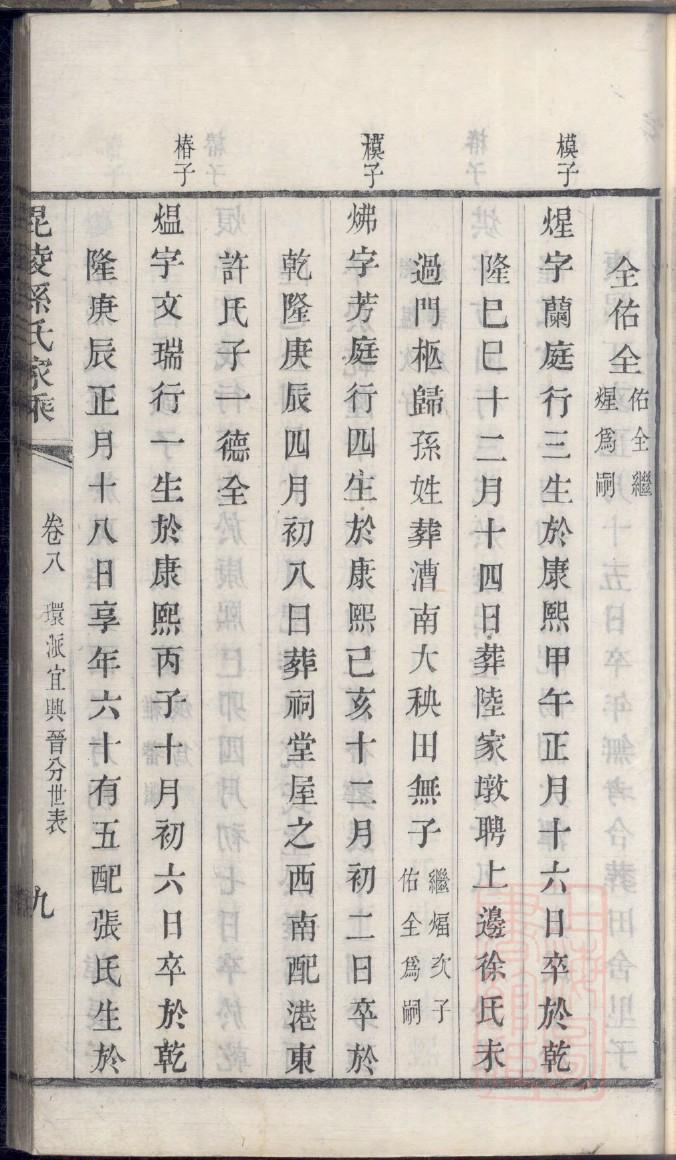 全佑全 佑全繼煋爲嗣
模子
煋字蘭庭行三生於康熙甲午正月十六日卒於乾
隆己巳十二月十四日葬陸家墩聘上邊徐氏未
過門柩歸孫姓葬漕南大秧田無子 繼煏次子佑全爲嗣
模子
炥字芳庭行四生於康熙己亥十二月初二日卒於
乾隆庚辰四月初八日葬祠堂屋之西南配港東
許氏子一德全
椿子
熅字文瑞行一生於康熙丙子十月初六日卒於乾
隆庚辰正月十八日享年六十有五配張氏生於
毘陵孫氏家乘
卷八 環派宜興晉分世表 九